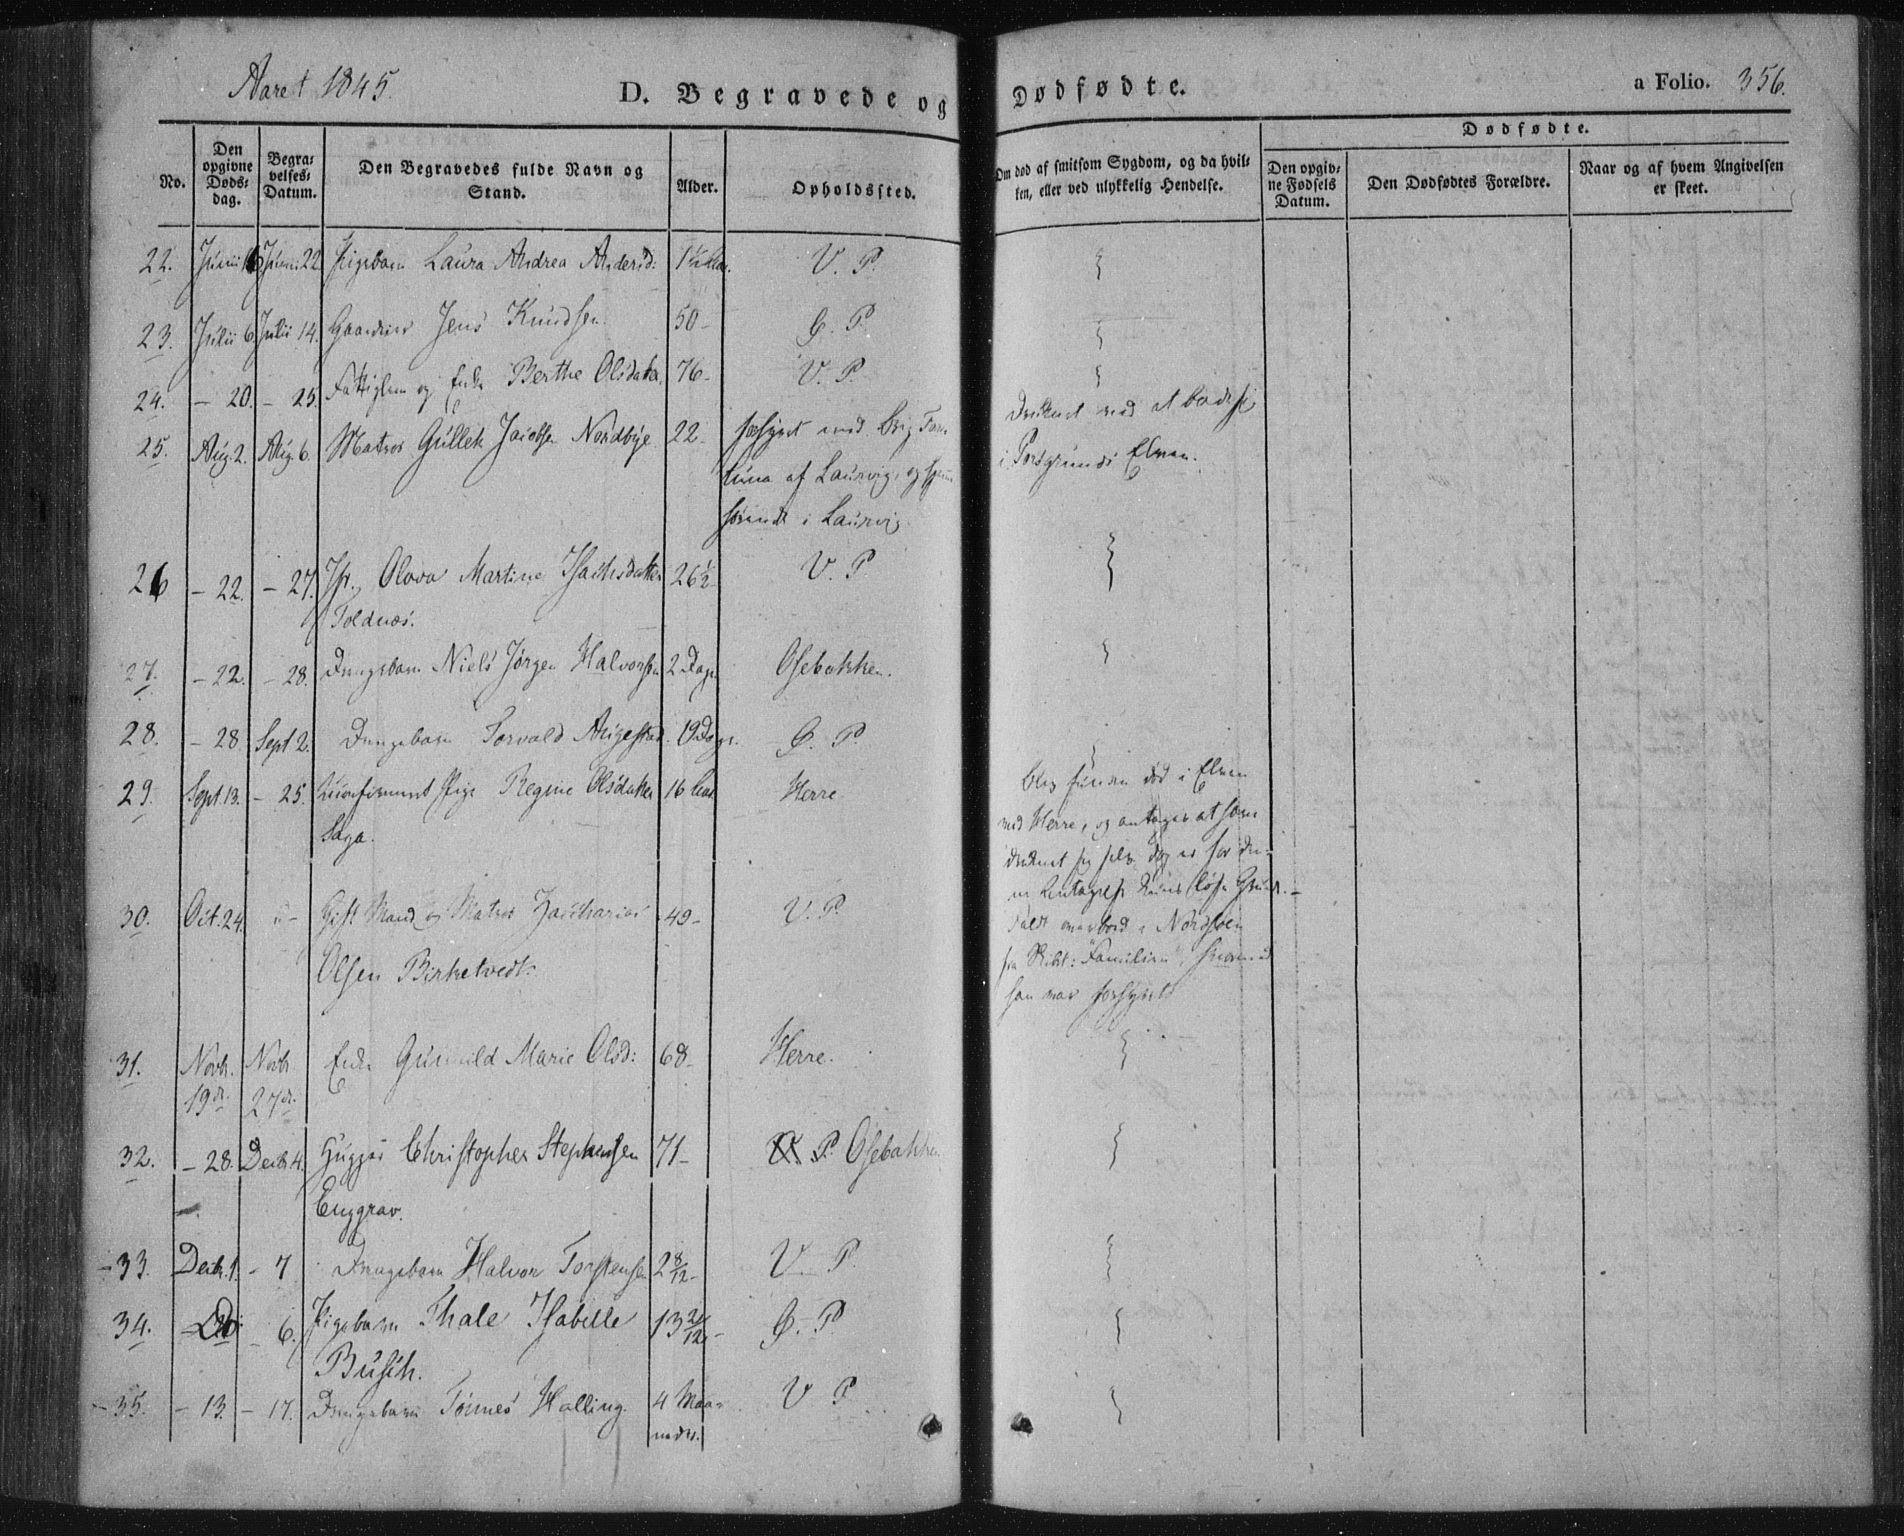 Aaret 1845.
D. Begravede og Dødfødte.
a Folio. 356.
No.
Den opgivne Døds-dag.
Begra-velses-Datum.
Den Begravedes fulde Navn og Stand.
Alder.
Opholdssted.
Om død af smitsom Sygdom, og da hvil-
ken, eller ved ulykkelig Hendelse.
Dødfødte.
Den opgiv-ne Fødsels Datum.
Den Dødfødtes Forældre.
Naar og af hvem Angivelsen er skeet.
22. Junii 16 Junii 22 Pigebarn Laura Andrea Andersd: 1½ Aar. V. P.
23. Julii 6. Julii 14. Gaardm Jens Knudsen 50- Ø. P.
24. - 20. - 25. Fattiglem og Enke Berthe Olsdatter 76- V. P.
25. Aug. 2. Aug. 6. Matros Gullek Jacobsen Nordbye 22- forhyret med Brig For-
tuna af Laurvig, og hjem-
i Laurvig.
Druknet ved at bade sig
i Porsgrunds Elven.
26 - 22. - 27. Jfr. Olava Martine Isachsdatter 26½- V. P.
Toldnæs.
27. - 22. - 28. Drengebarn Niels Jørgen Halvorsen 2 Dage Osebakken.
28. - 28. Sept 2. Drengebarn Torvald Augestad. 19 Dage. Ø. P.
29. Sept. 13. - 25. Ukonfirmeret Pige Regine Olsdatter 16 Aar Herre
Saga.
Blev funden død i Elven
ved Herre, og antages at have
druknet sig selv. Dog er for den-
ne Antagelse kuns løse Grund. -
30. Oct. 24. - Gift Mand og Matros Zacharias 49- V. P.
Olsen Birketvedt.
Faldt overbord i Nordsøen
fra Skibt: "Familien", hvormed
han var forhyret
31. Novbr. 19de. Novbr. 27de. Enke Gunnild Marie Olsd: 68- Herre.
32. - 28. Decbr 4. Huusm Christopher Stephensen 71- P. Osebakken
Enggrav.
33. Decbr. 1. - 7 Drengebarn Halvor Torstensen 2 8/12- V. P.
34. - 6. Pigebarn Thale Isabelle 13 2/12- Ø. P.
Busch.
35. - 13. - 17. Drengebarn Tønnes Halling. 4 Maa-
neder.
V P.